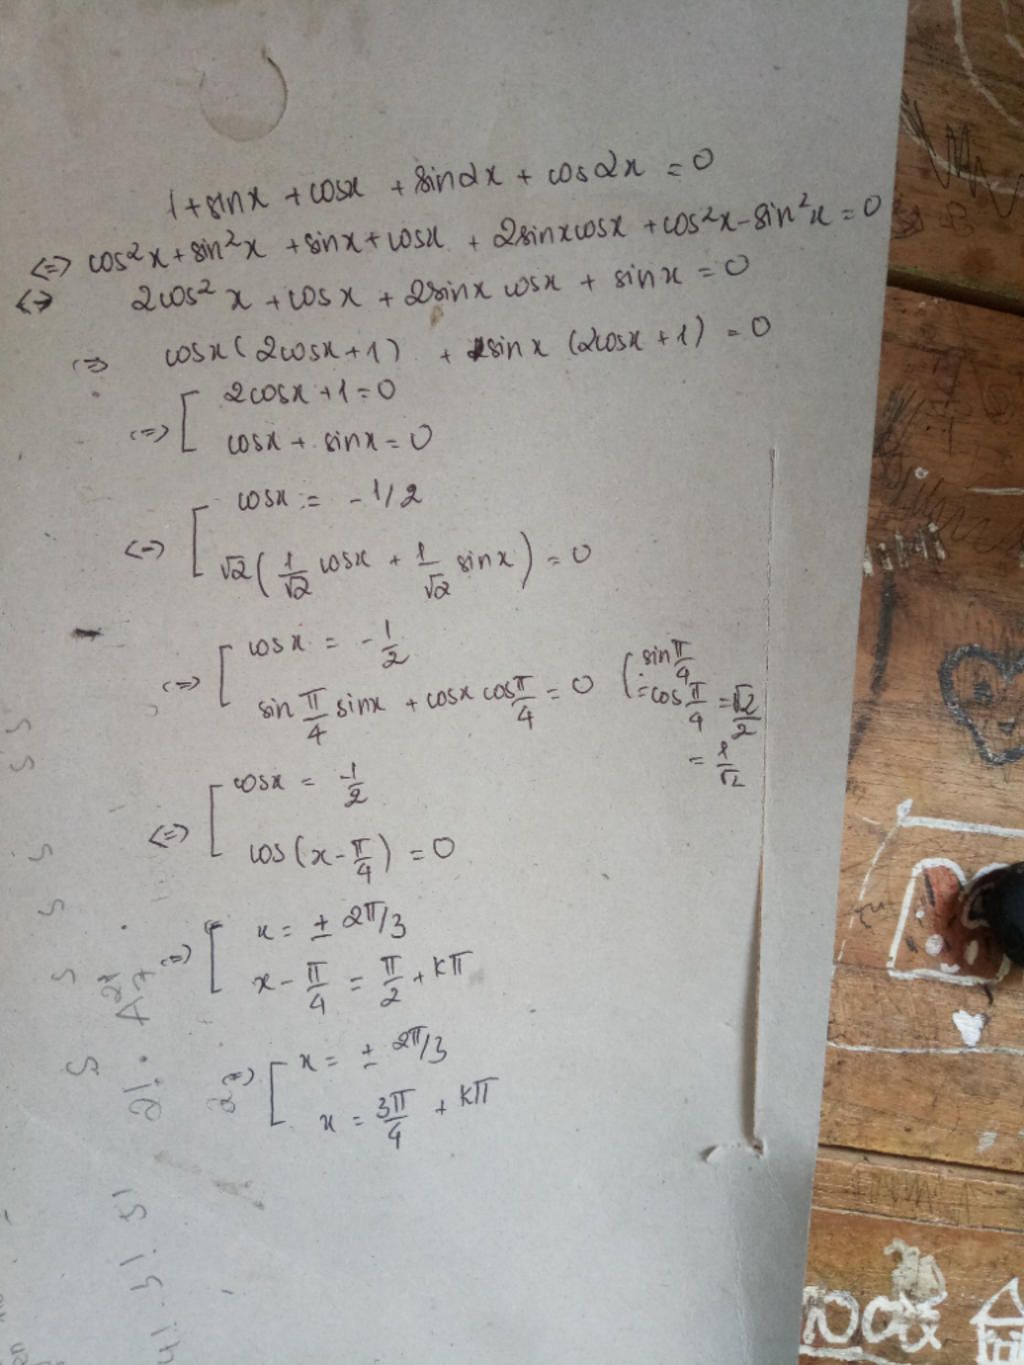 1+sinx + cosx + sin2x + cos2x = 0
<=> cos²x + sin²x + sinx + cosx + 2sinxcosx + cos²x - sin²x = 0
<=> 2cos²x + cosx + 2sinx cosx + sinx = 0
=> cosx(2cosx+1) + sinx (2cosx+1) = 0
<=> [ 2cosx+1=0
cosx + sinx = 0
<=> [ cosx = -1/2
√2(1/√2 cosx + 1/√2 sinx) = 0
<=> [ cosx = -1/2
sin π/4 sinx + cosx cos π/4 = 0 ( sin π/4
= cos π/4 = √2/2
= 1/√2
<=> [ cosx = -1/2
cos(x - π/4) = 0
<=> [ x = ± 2π/3
x - π/4 = π/2 + kπ
[ x = ± 2π/3
x = 3π/4 + kπ